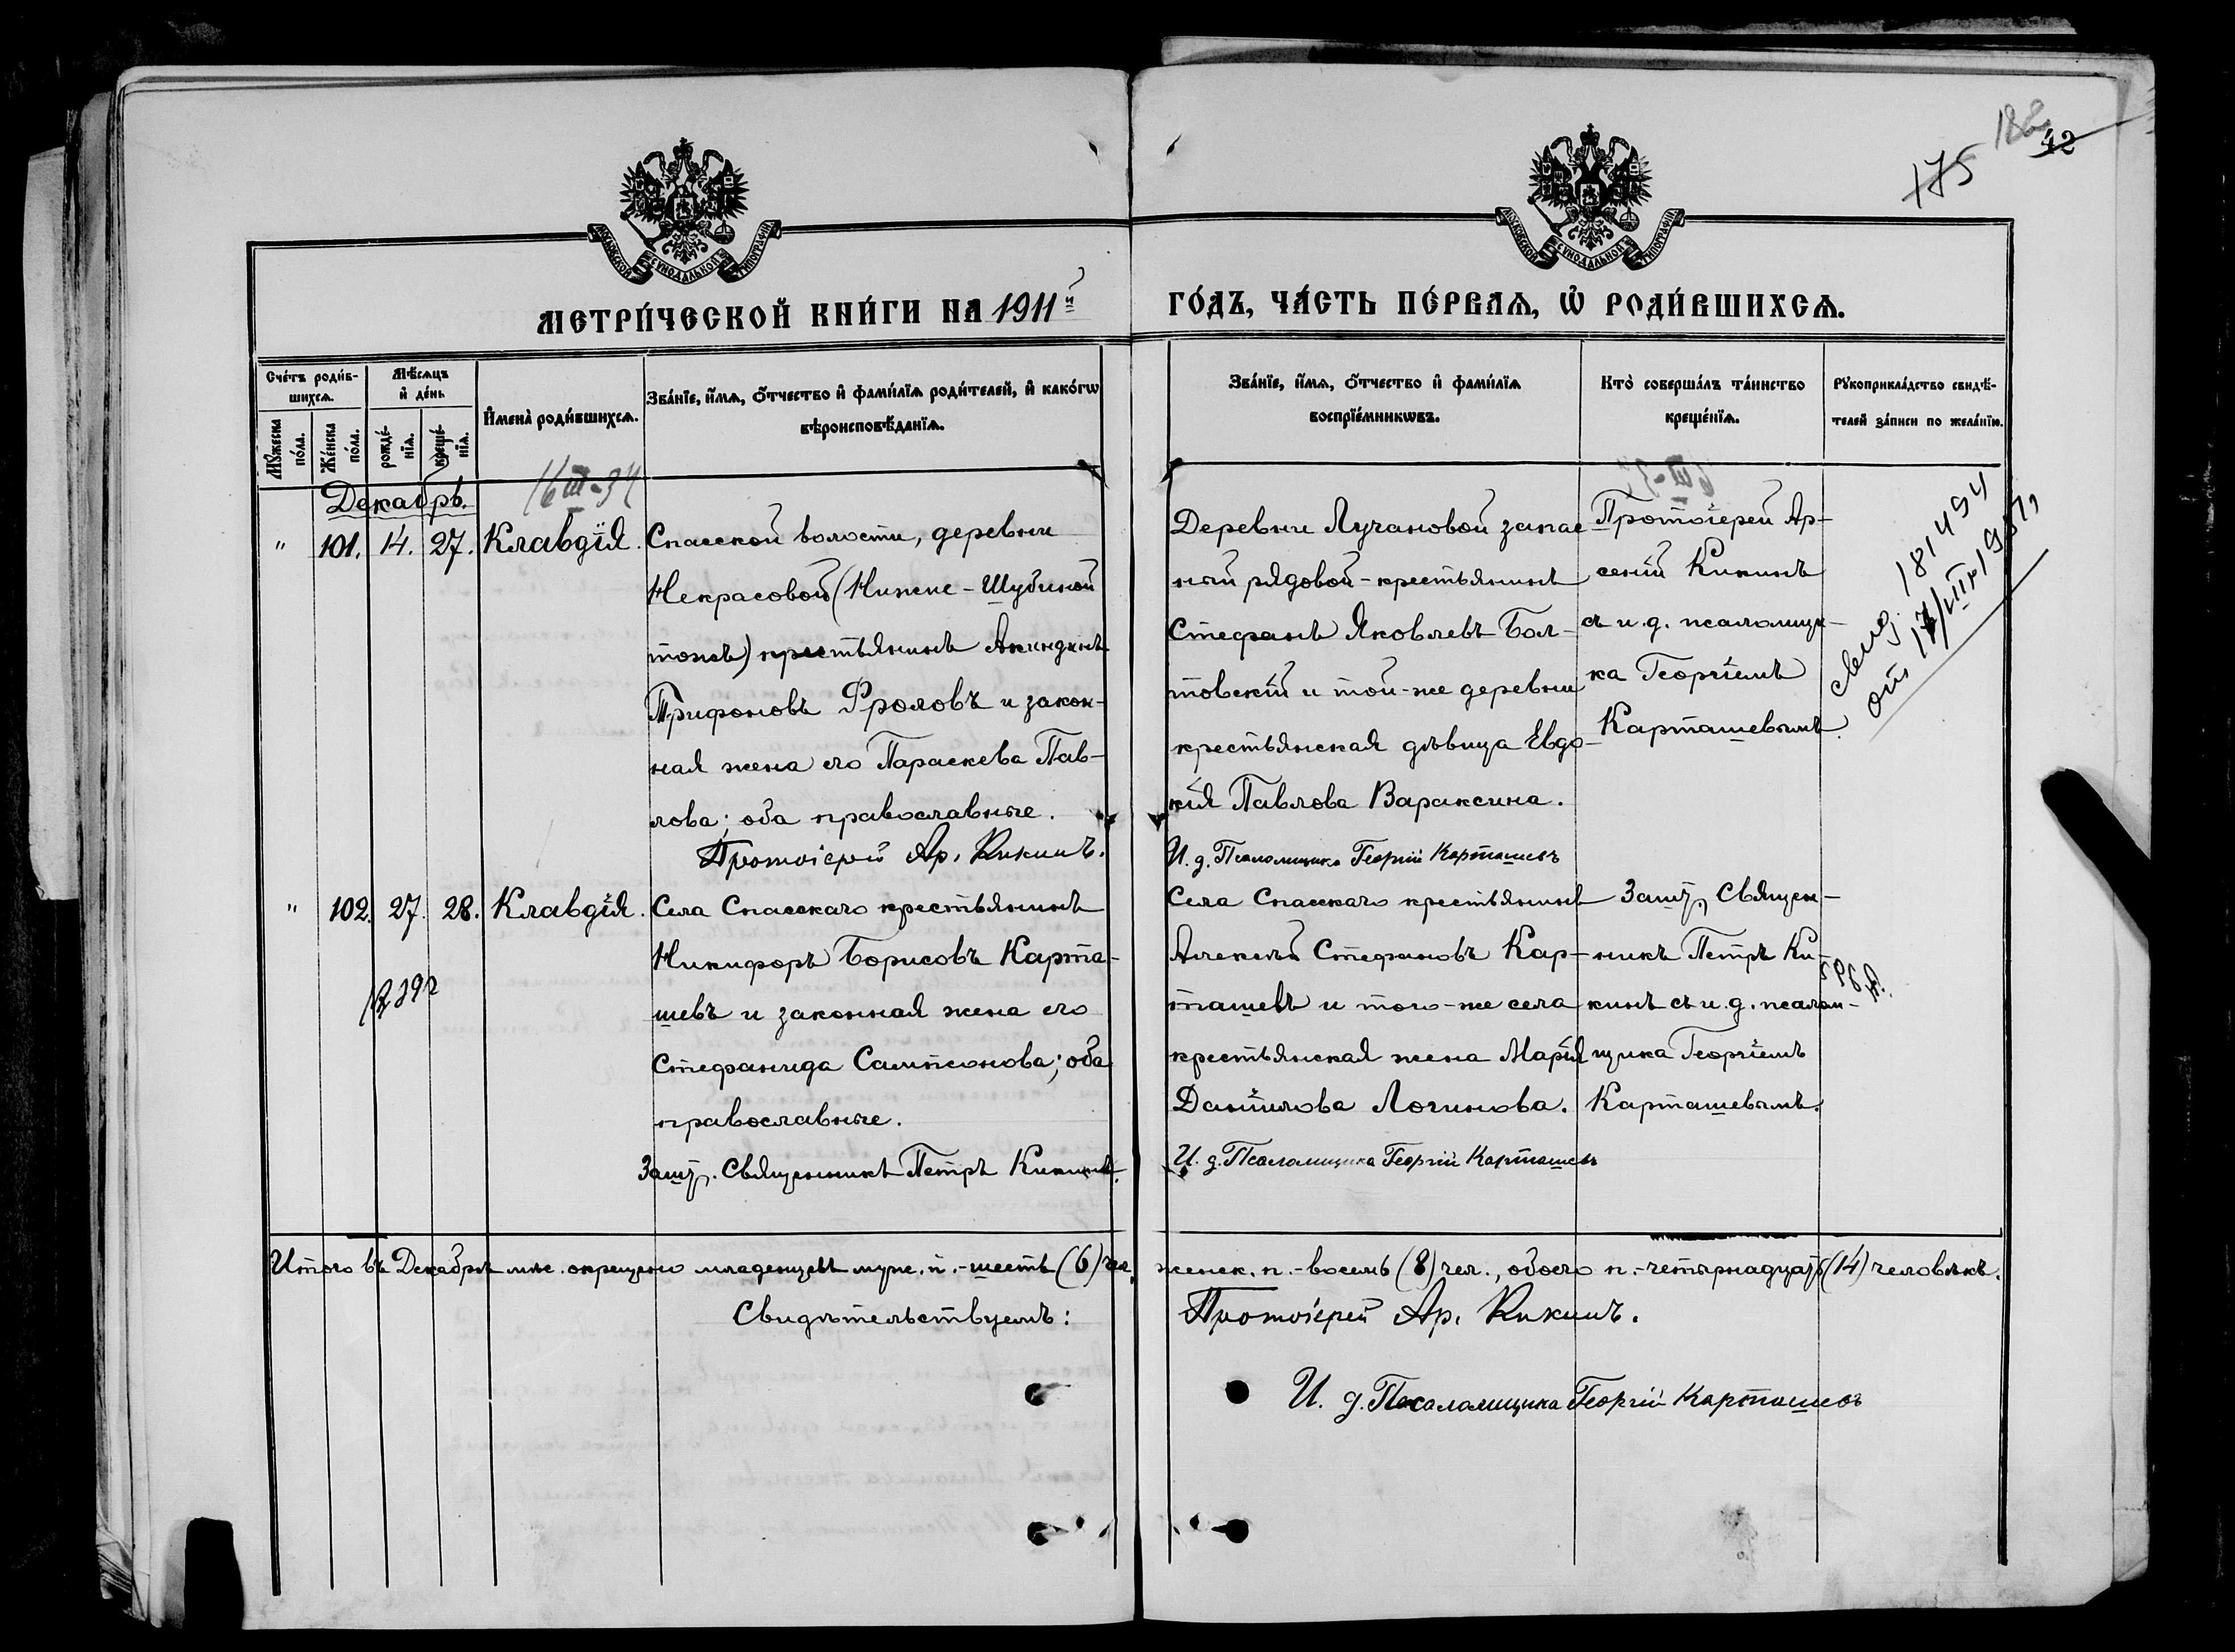 175
182
42
МОСКОВСКОЙ СѴНОДАЛЬНОЙ ТИПОГРАФІИ
МОСКОВСКОЙ СѴНОДАЛЬНОЙ ТИПОГРАФІИ
МЕТРИ́ЧЕСКОЙ КНИ́ГИ НА 1911й
ГО́ДЪ, ЧА́СТЬ ПЕ́РВАѦ, Ѡ҆ РОДИ́ВШИХСѦ.
Сче́тъ роди́в-
шихсѧ.
Мѣ́сѧцъ
и҆ де́нь
Мꙋ́жеска
по́ла.
Же́нска
по́ла.
рожде́-
нїѧ.
креще́-
нїѧ.
И҆мена̀ роди́вшихсѧ.
Зва́нїе, и҆́мѧ, ѻ҆́тчество и҆ фами́лїѧ роди́телей, и҆ како́гѡ
вѣроисповѣ́данїѧ.
Зва́нїе, и҆́мѧ, ѻ҆́тчество и҆ фами́лїѧ
воспрїе́мникѡвъ.
Кто̀ соверша́лъ та́инство
креще́нїѧ.
Рꙋкоприкла́дство свидѣ́-
телей за́писи по жела́нїю.
Декабрь.
" 101. 14. 27. Клавдія.
Спасской волости, деревни
Некрасовой (Нижне-Шубиной
тожъ) крестьянинъ Акиндинъ
Трифоновъ Фроловъ и закон-
ная жена его Параскева Пав-
лова; оба православные.
Протоіерей Ар. Кикинъ.
Деревни Лучановой запас
ный рядовой-крестьянинъ
Стефанъ Яковлевъ Бол-
товскій и той-же деревни
крестьянская дѣвица Евдо-
кія Павлова Вараксина.
И. д. Псаломщика Георгій Карташевъ
Протоіерей Ар-
сеній Кикинъ
съ и. д. псаломщи-
ка Георгіемъ
Карташевымъ.
свид. 181494
от 17/VIII-1957,
" 102. 27. 28. Клавдія.
Села Спасскаго крестьянинъ
Никифоръ Борисовъ Карта-
шевъ и законная жена его
Стефанида Сампсонова; оба
православные.
Зашт. Священникъ Петръ Кикинъ.
Села Спасскаго крестьянинъ
Алексѣй Стефановъ Кар-
ташевъ и того-же села
крестьянская жена Марія
Даніилова Логинова.
И. д. Псаломщика Георгій Карташевъ
Зашт. Священ-
никъ Петръ Ки-
кинъ съ и. д. псалом-
щика Георгіемъ
Карташевымъ.
Итого въ Декабрѣ мѣс. окрещено младенцевъ муж. п. - шесть (6) чел.
женск. п. - восемь (8) чел., обоего п. - четырнадцать (14) человѣкъ.
Свидѣтельствуемъ:
Протоіерей Ар. Кикинъ.
И. д. Псаломщика Георгій Карташевъ